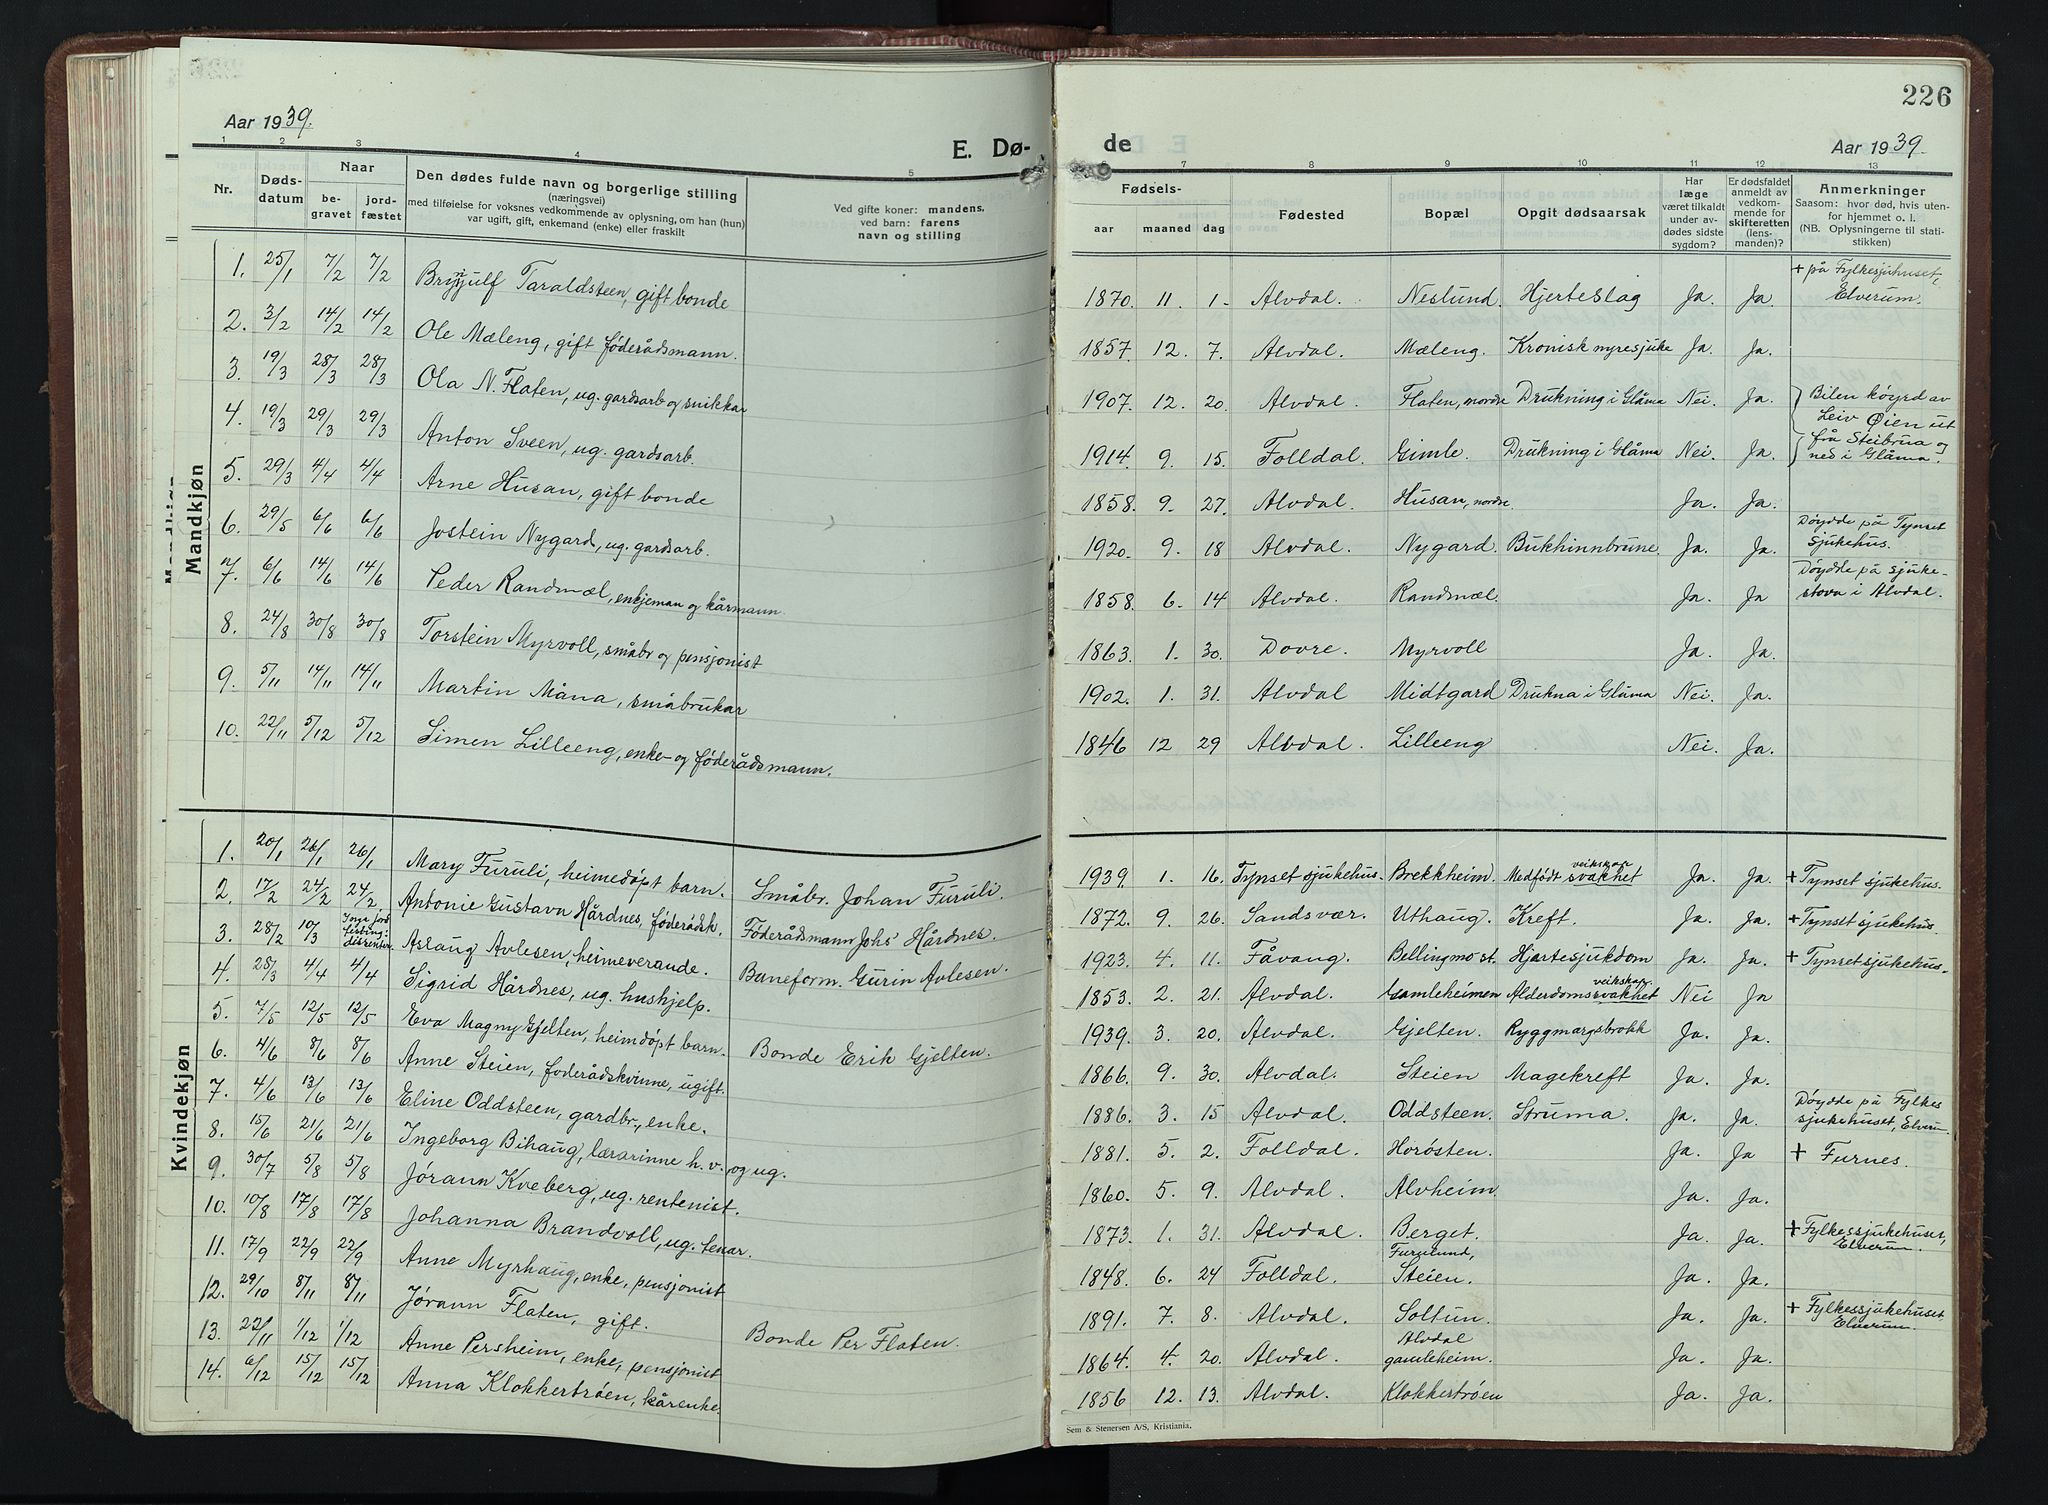 226
Aar 1939.
E. Dø-
de
Aar 1939.
1 2 3 4 5 6 7 8 9 10 11 12 13
Nr.
Døds-
datum
Naar
be-
gravet
jord-
fæstet
Den dødes fulde navn og borgerlige stilling
(næringsvei)
med tilføielse for voksnes vedkommende av oplysning, om han (hun)
var ugift, gift, enkemand (enke) eller fraskilt
Ved gifte koner: mandens,
ved barn: farens
navn og stilling
Fødsels-
aar maaned dag
Fødested
Bopæl
Opgit dødsaarsak
Har
læge
været tilkaldt
under av-
dødes sidste
sygdom?
Er dødsfaldet
anmeldt av
vedkom-
mende for
skifteretten
(lens-
manden)?
Anmerkninger
Saasom: hvor død, hvis uten-
for hjemmet o. l.
(NB. Oplysningerne til stati-
stikken)
Mandkjøn
1. 25/1 7/2 7/2 Brynjulf Taraldsteen, gift bonde 1870. 11. 1. Alvdal. Neslund. Hjerteslag Ja. Ja + på Fylkesjuhuset, Elverum.
2. 3/2 14/2 14/2 Ole Mæleng, gift føderådsmann. 1857. 12. 7. Alvdal. Mæleng. Kronisk nyresjuke Ja. Ja.
3. 19/3 28/3 28/3 Ola N. Flaten, ug. gardsarb og snikkar 1907. 12. 20. Alvdal. Flaten, nordre Drukning i Glåma Nei. Ja. Bilen køyrd av Leiv Øien ut
4. 19/3 29/3 29/3 Anton Sveen, ug. gardsarb. 1914. 9. 15. Folldal. Gimle. Drukning i Glåma Nei. Ja. frå Steibrua og ned i Glåma.
5. 29/3 4/4 4/4 Arne Husan, gift bonde 1858. 9. 27. Alvdal. Husan, nordre Ja. Ja.
6. 29/5 6/6 6/6 Jostein Nygard, ug. gardsarb. 1920. 9. 18 Alvdal. Nygard. Bukhinnbrune Ja. Ja. Døydde på Tynset sjukehus.
7. 6/6 14/6 14/6 Peder Randmæl, enkjeman og kårmann. 1858. 6. 14 Alvdal. Randmæl. Ja. Ja Døydde på sjuke- stova i Alvdal.
8. 24/8 30/8 30/8 Torstein Myrvoll, småbr og pensjonist 1863. 1. 30. Dovre. Myrvoll Ja. Ja.
9. 5/11 14/11 14/11 Martin Måna, småbrukar 1902. 1. 31. Alvdal Midtgard Drukna i Glåma Nei. Ja.
10. 22/11 5/12 5/12 Simen Lilleeng, enke- og føderådsmann. 1846 12 29 Alvdal. Lilleeng Nei. Ja.
Kvindekjøn
1. 20/1 26/1 26/1 Mary Furuli, heimedøpt barn. Småbr. Johan Furuli. 1939. 1. 16. Tynset sjukehus. Brekkheim. Medfødt svakhet veikskap Ja. Ja. + Tynset sjukehus.
2. 17/2 24/2 24/2 Antonie Gustava Hårdnes, føderådsk. Føderådsmann Johs Hårdnes. 1872. 9. 26. Sandsvær. Uthaug. Kreft. Ja. Ja. + Tynset sjukehus.
3. 28/2 10/3 dissenter Aslaug Avlesen, heimeverande. Baneform. Gurin Avlesen. 1923. 4. 11. Fåvang. Bellingmo st. Hjartesjukdom Ja. Ja. + Tynset sjukehus.
4. 28/3 4/4 4/4 Sigrid Hårdnes, ug. hushjelp. 1853. 2. 21. Alvdal. Gamleheimen Alderdomssvakhet veikskap. Nei Ja
5. 7/5 12/5 12/5 Eva Magny Gjelten, heimdøpt barn. Bonde Erik Gjelten. 1939. 3. 20. Alvdal. Gjelten. Ryggmargsbrokk Ja. Ja.
6. 4/6 8/6 8/6 Anne Steien, føderådskvinne, ugift. 1866. 9. 30. Alvdal. Steien Magekreft Ja. Ja.
7. 4/6 13/6 13/6 Eline Oddsteen, gardbr., enke. 1886. 3. 15 Alvdal. Oddsteen. Struma. Ja. Ja. Døydde på Fylkes sjukehuset, Elverum.
8. 15/6 21/6 21/6 Ingeborg Bihaug, lærarinne h. v. og ug. 1881. 5. 2. Folldal. Horøsten. Ja. Ja + Furnes.
9. 30/7 5/8 5/8 Jørann Kveberg, ug. rentenist. 1860. 5. 9. Alvdal. Alvheim. Ja. Ja.
10. 10/8 17/8 17/8 Johanna Brandvoll, ug. tenar. 1873. 1. 31. Alvdal. Berget. Ja. Ja. + Fylkessjukehuset, Elverum.
11. 17/9 22/9 22/9 Anne Myrhaug, enke, pensjonist 1848. 6. 24 Folldal. Furulund, Steien. Ja. Ja.
12. 29/10 8/11 8/11 Jørann Flaten, gift. Bonde Per Flaten. 1891. 7. 8. Alvdal. Soltun. Ja. Ja. + Fylkessjukehuset Elverum.
13. 22/11 1/12 1/12 Anne Persheim, enke, pensjonist 1864. 4. 20. Alvdal. Alvdal gamleheim. Ja. Ja.
14. 6/12 15/12 15/12 Anna Klokkertrøen, kårenke. 1856 12. 13. Alvdal. Klokkertrøen Ja. Ja.
Sem & Stenersen A/S, Kristiania.